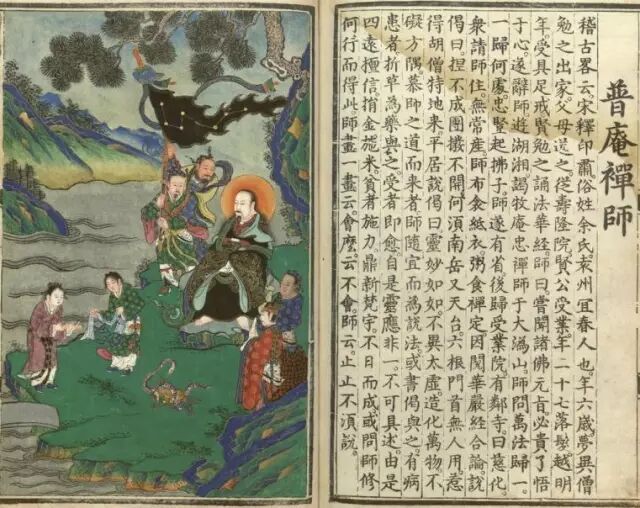 普庵禪師
稽古畧云宋釋印肅俗姓余氏袁州宜春人也年六歲夢異僧
勉之出家父母送之從壽隆院賢公受業年二十七落髮越明
年受具足戒賢勉之誦法華經師曰嘗聞諸佛元旨必貴了悟
于心遂辭師遊湖湘謁牧庵忠禪師于大溈山師問萬法歸一
一歸何處忠竪起拂子師遂有省後歸受業院有鄰寺曰慈化
衆請師住無常產師布衾紙衣粥食禪定因閱華嚴經合論說
偈曰捏不成團撥不開何須南岳又天台六根門首無人用惹
得胡僧特地来平居說偈曰靈妙如如不異太虛造化萬物不
礙方隅慕師之道而来者師隨宜而為說法或書偈與之有病
患者折草為藥與之受者即愈自是靈應非一不可具述由是
四遠極信捐金施米貧者施力鼎新梵宇不日而成或問師修
何行而得此師畫一畫云會麽云不會師云止止不須說